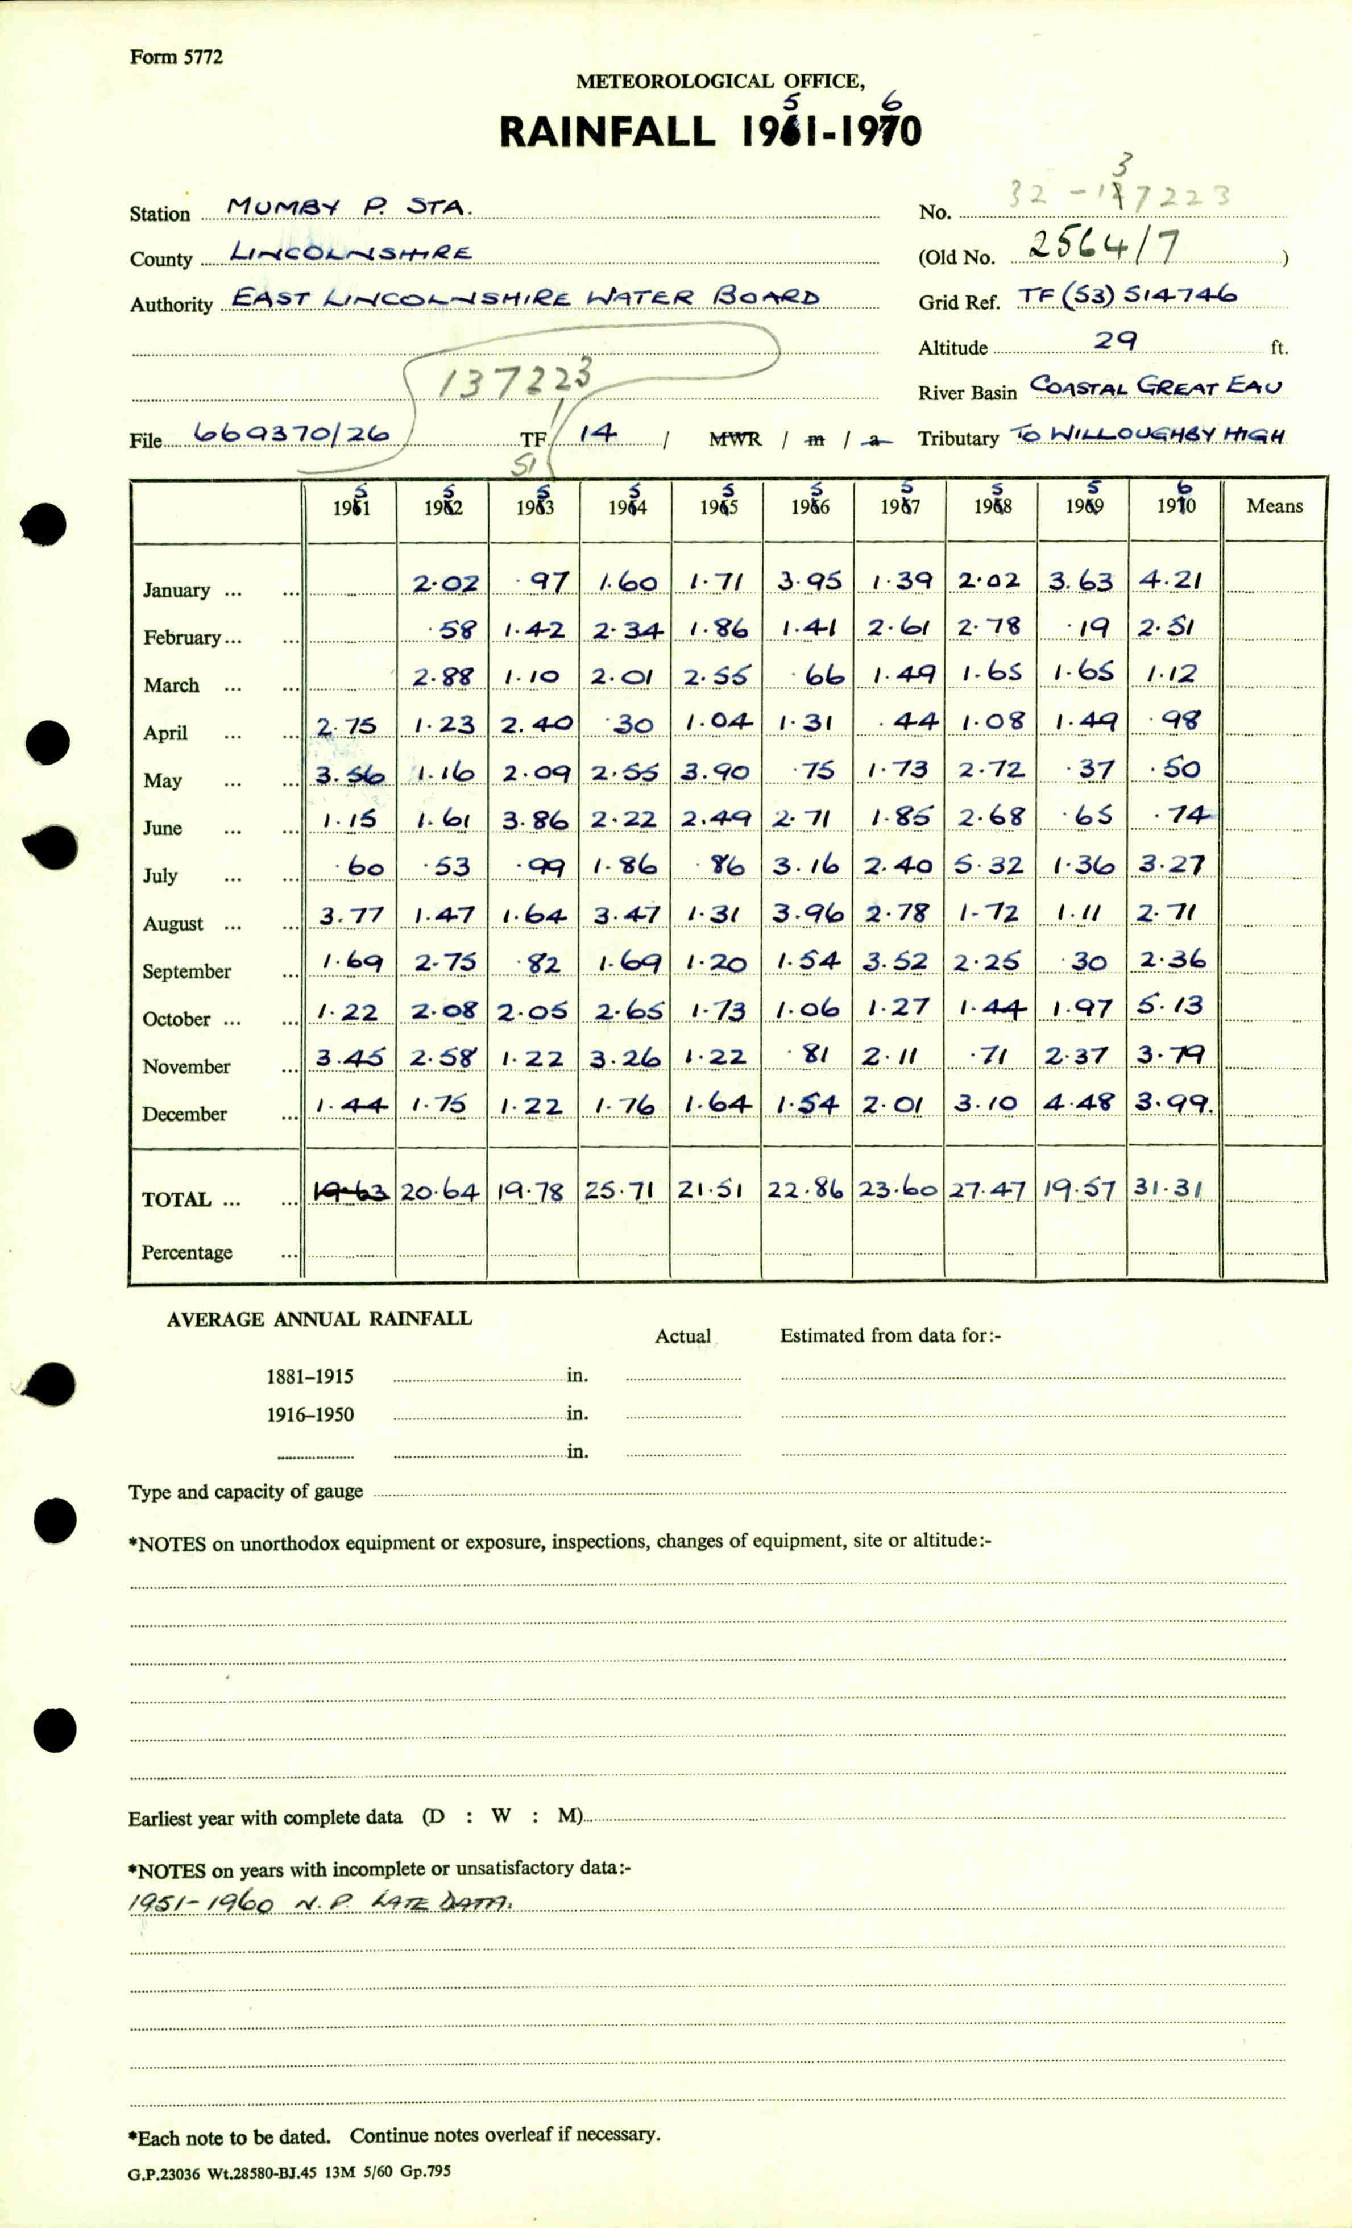 Form 5772
METEOROLOGICAL OFFICE,
RAINFALL 1951-1960
Station MUMBY P. STA.
No. 32-137223
County LINCOLNSHIRE
(Old No. 2564/7)
Authority EAST LINCOLNSHIRE WATER BOARD
Grid Ref. TF(53) 514746
Altitude 29 ft.
137223
River Basin COASTAL GREAT EAU
File 669370/26 TF 14 / MWR / m / a Tributary TO WILLOUGHBY HIGH
51
1951 1952 1953 1954 1955 1956 1957 1958 1959 1960 Means
January ... ... 2.02 .97 1.60 1.71 3.95 1.39 2.02 3.63 4.21
February ... ... .58 1.42 2.34 1.86 1.41 2.61 2.78 .19 2.51
March ... ... 2.88 1.10 2.01 2.55 .66 1.49 1.65 1.65 1.12
April ... ... 2.75 1.23 2.40 .30 1.04 1.31 .44 1.08 1.49 .98
May ... ... 3.56 1.16 2.09 2.55 3.90 .75 1.73 2.72 .37 .50
June ... ... 1.15 1.61 3.86 2.22 2.49 2.71 1.85 2.68 .65 .74
July ... ... .60 .53 .99 1.86 .86 3.16 2.40 5.32 1.36 3.27
August ... ... 3.77 1.47 1.64 3.47 1.31 3.96 2.78 1.72 1.11 2.71
September ... 1.69 2.75 .82 1.69 1.20 1.54 3.52 2.25 .30 2.36
October ... ... 1.22 2.08 2.05 2.65 1.73 1.06 1.27 1.44 1.97 5.13
November ... 3.45 2.58 1.22 3.26 1.22 .81 2.11 .71 2.37 3.79
December ... 1.44 1.75 1.22 1.76 1.64 1.54 2.01 3.10 4.48 3.99.
TOTAL ... ... 19.63 20.64 19.78 25.71 21.51 22.86 23.60 27.47 19.57 31.31
Percentage ...
AVERAGE ANNUAL RAINFALL
Actual Estimated from data for:-
1881-1915 in.
1916-1950 in.
in.
Type and capacity of gauge
*NOTES on unorthodox equipment or exposure, inspections, changes of equipment, site or altitude:-
Earliest year with complete data (D : W : M)
*NOTES on years with incomplete or unsatisfactory data:-
1951-1960 N.P. LATE DATA.
*Each note to be dated. Continue notes overleaf if necessary.
G.P.23036 Wt.28580-BJ.45 13M 5/60 Gp.795